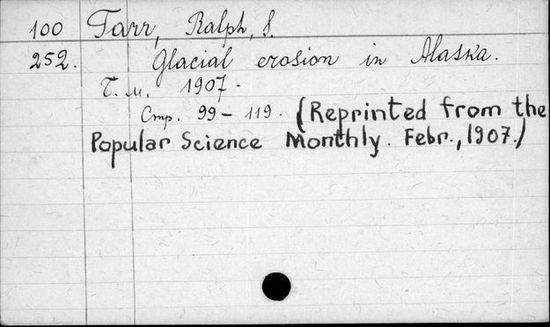 100 Tarr, Ralph, S.
252. Glacial erosion in Alaska.
Т. м. 1907.
Стр. 99 – 119. (Reprinted from the
Popular Science Monthly. Febr., 1907.)